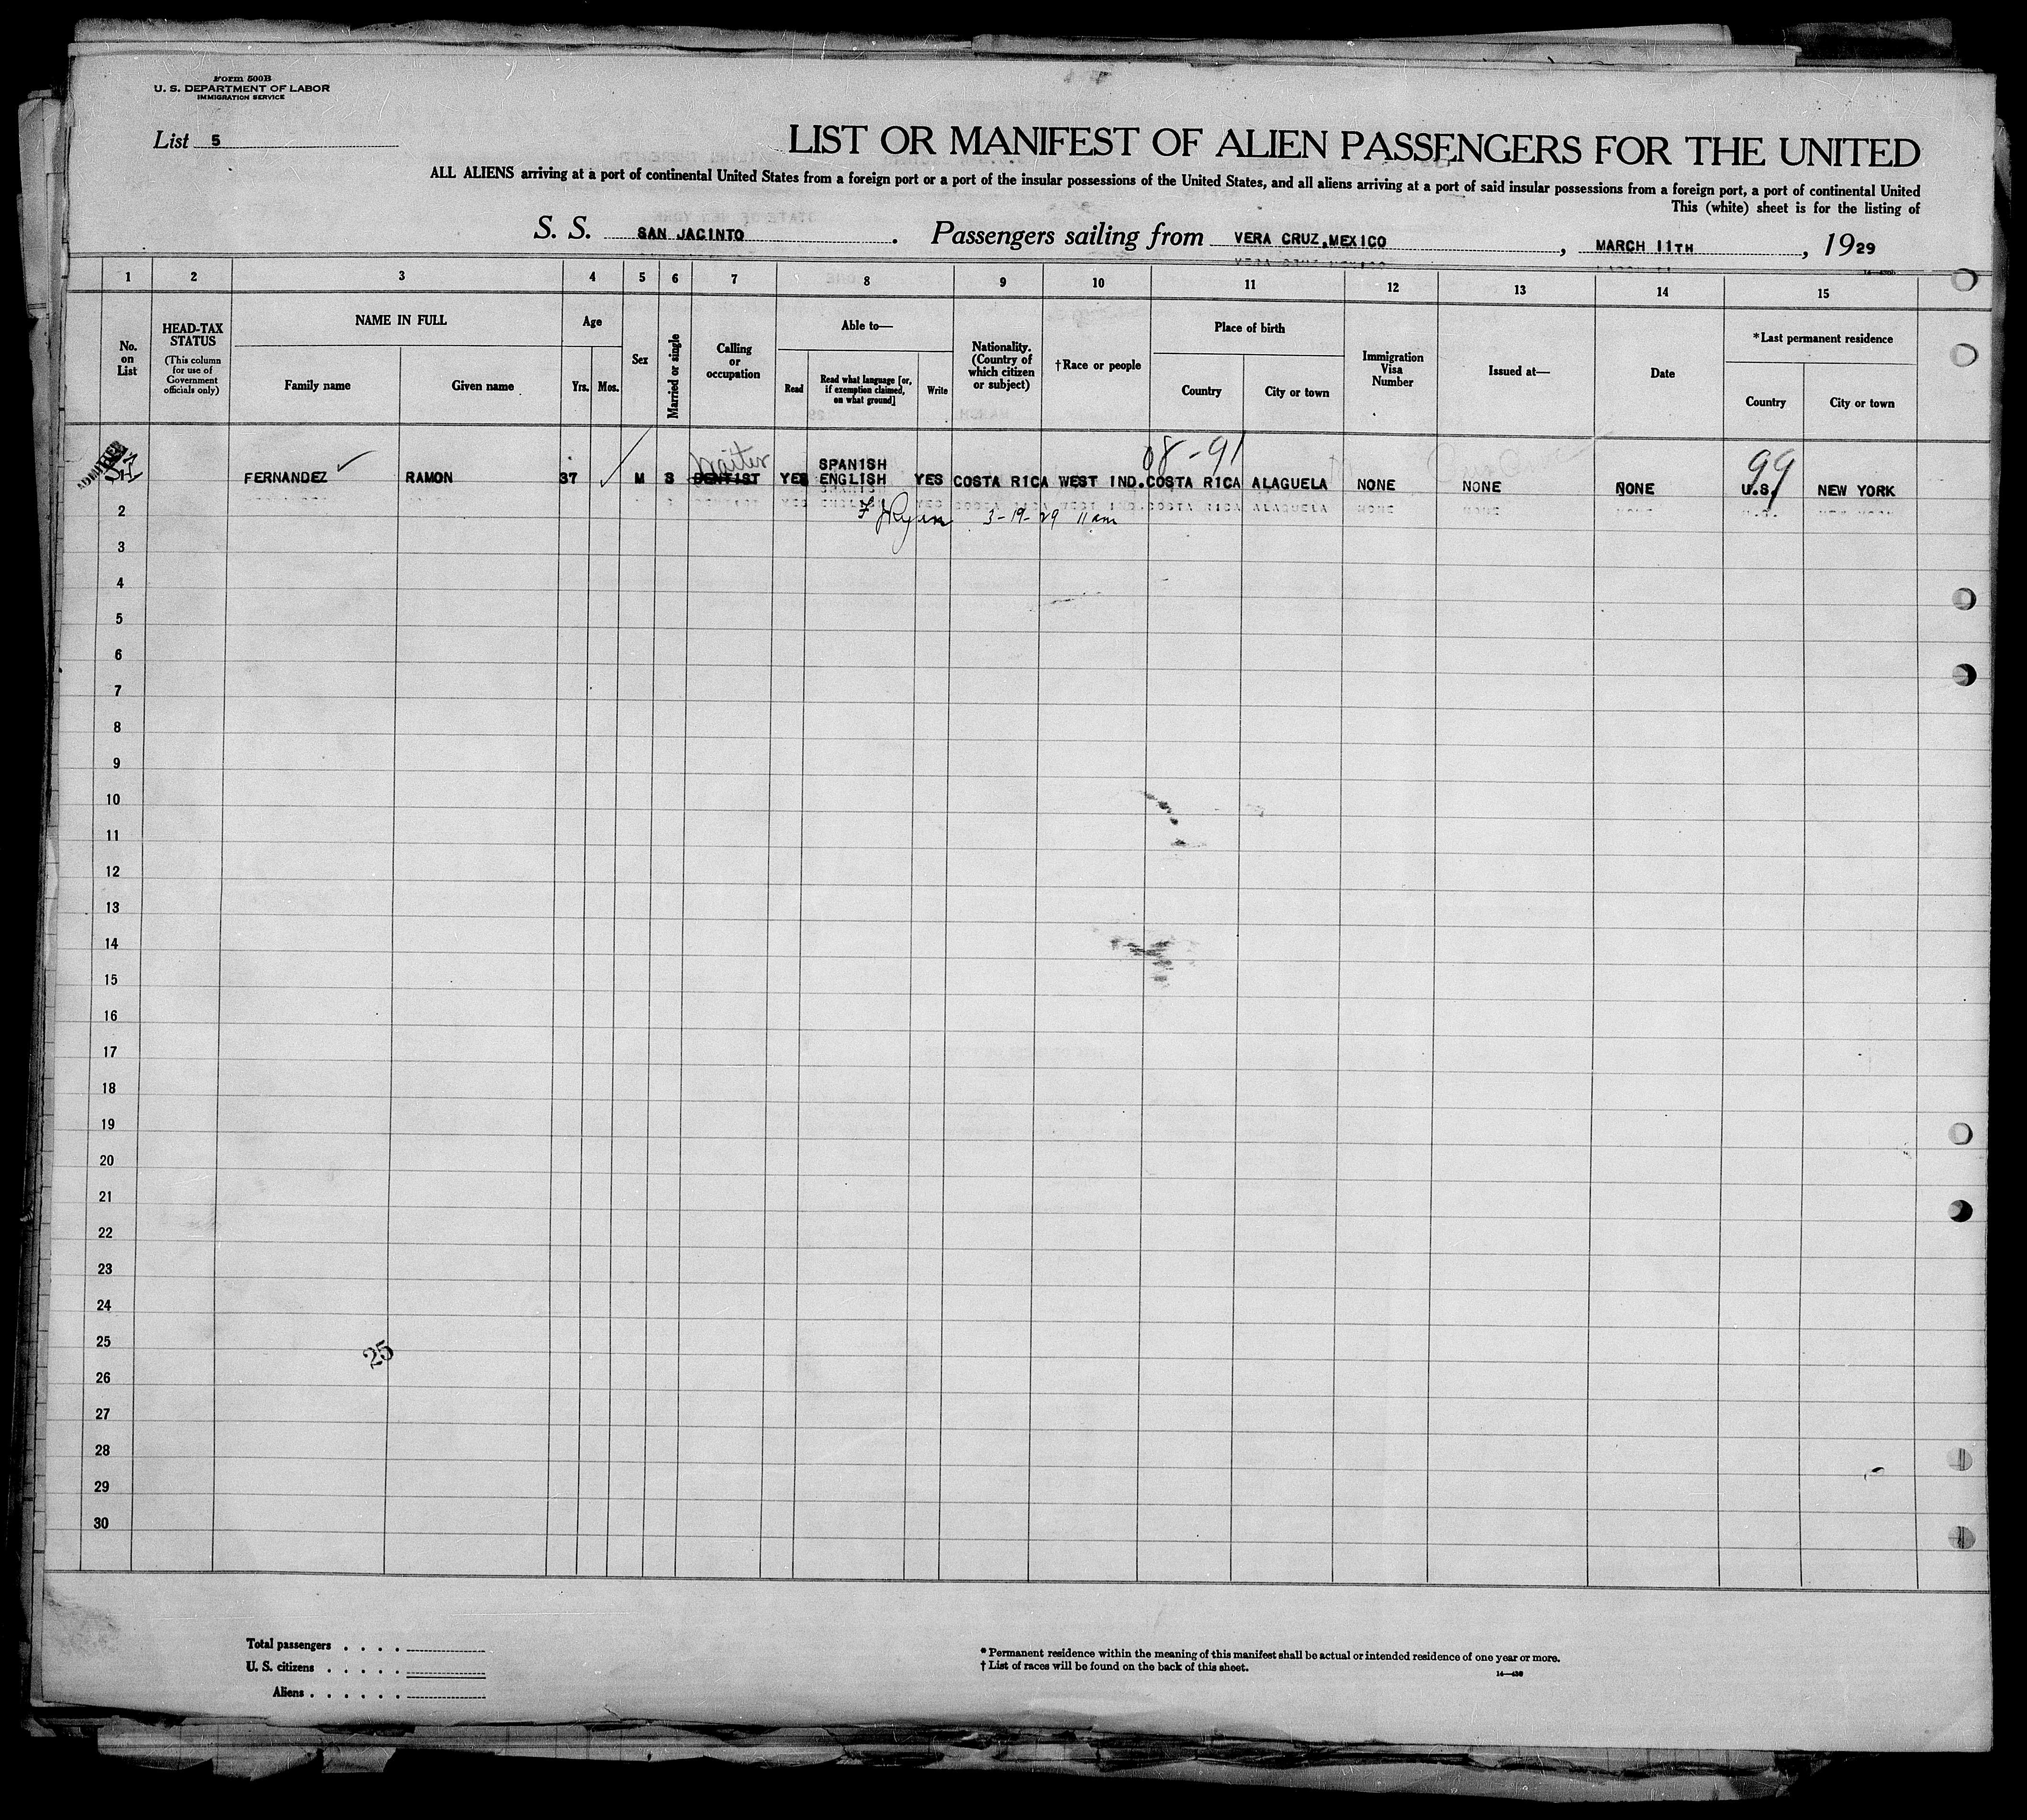 Form 500B
U. S. DEPARTMENT OF LABOR
IMMIGRATION SERVICE
List 5
LIST OR MANIFEST OF ALIEN PASSENGERS FOR THE UNITED
ALL ALIENS arriving at a port of continental United States from a foreign port or a port of the insular possessions of the United States, and all aliens arriving at a port of said insular possessions from a foreign port, a port of continental United
This (white) sheet is for the listing of
S. S. SAN JACINTO. Passengers sailing from VERA CRUZ, MEXICO, MARCH 11TH, 1929
1 2 3 4 5 6 7 8 9 10 11 12 13 14 15
No. on List
HEAD-TAX STATUS
(This column for use of Government officials only)
NAME IN FULL
Family name
Given name
Age
Yrs.
Mos.
Sex
Married or single
Calling or occupation
Able to—
Read
Read what language [or, if exemption claimed, on what ground]
Write
Nationality. (Country of which citizen or subject)
†Race or people
Place of birth
Country
City or town
Immigration Visa Number
Issued at—
Date
*Last permanent residence
Country
City or town
08-91
99
Waiter
ADMITTED
FERNANDEZ RAMON 37 M S DENTIST YES SPANISH ENGLISH YES COSTA RICA WEST IND. COSTA RICA ALAGUELA NONE NONE NONE U.S. NEW YORK
2
F J Ryan 3-19-29 11 am
3
4
5
6
7
8
9
10
11
12
13
14
15
16
17
18
19
20
21
22
23
24
25
25
26
27
28
29
30
Total passengers . . . .
U. S. citizens . . . . .
Aliens . . . . . .
* Permanent residence within the meaning of this manifest shall be actual or intended residence of one year or more.
† List of races will be found on the back of this sheet.